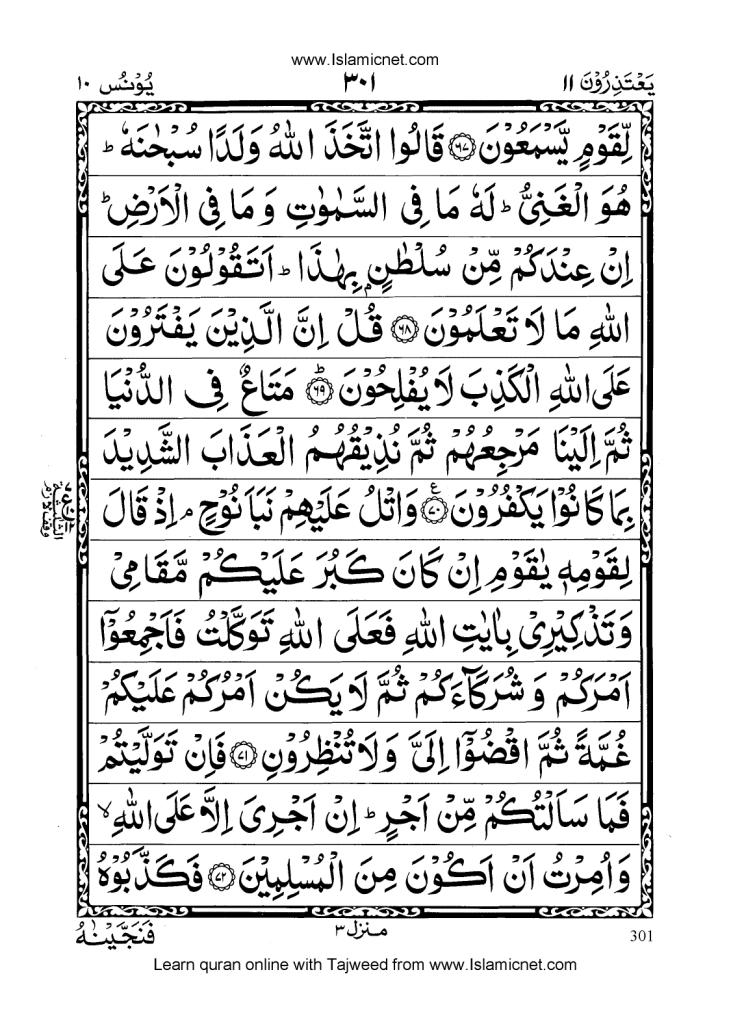 www.Islamicnet.com
يَعْتَذِرُوْنَ ١١ ٣٠١ يُوْنُس ١٠
لِّقَوْمٍ يَّسْمَعُوْنَ ﴿٦٧﴾ قَالُوا اتَّخَذَ اللّٰهُ وَلَدًا سُبْحٰنَهٗ ؕ
هُوَ الْغَنِىُّ ؕ لَهٗ مَا فِى السَّمٰوٰتِ وَ مَا فِى الْاَرْضِ ؕ
اِنْ عِنْدَكُمْ مِّنْ سُلْطٰنٍۭ بِهٰذَا ؕ اَتَقُوْلُوْنَ عَلَى
اللّٰهِ مَا لَا تَعْلَمُوْنَ ﴿٦٨﴾ قُلْ اِنَّ الَّذِيْنَ يَفْتَرُوْنَ
عَلَى اللّٰهِ الْكَذِبَ لَا يُفْلِحُوْنَ ؕ﴿٦٩﴾ مَتَاعٌ فِى الدُّنْيَا
ثُمَّ اِلَيْنَا مَرْجِعُهُمْ ثُمَّ نُذِيْقُهُمُ الْعَذَابَ الشَّدِيْدَ
بِمَا كَانُوْا يَكْفُرُوْنَ ﴿٧٠﴾ ع وَاتْلُ عَلَيْهِمْ نَبَاَ نُوْحٍ ۘ اِذْ قَالَ
لِقَوْمِهٖ يٰقَوْمِ اِنْ كَانَ كَبُرَ عَلَيْكُمْ مَّقَامِىْ
وَتَذْكِيْرِىْ بِاٰيٰتِ اللّٰهِ فَعَلَى اللّٰهِ تَوَكَّلْتُ فَاَجْمِعُوْۤا
اَمْرَكُمْ وَ شُرَكَآءَكُمْ ثُمَّ لَا يَكُنْ اَمْرُكُمْ عَلَيْكُمْ
غُمَّةً ثُمَّ اقْضُوْۤا اِلَىَّ وَ لَا تُنْظِرُوْنِ ﴿٧١﴾ فَاِنْ تَوَلَّيْتُمْ
فَمَا سَاَلْتُكُمْ مِّنْ اَجْرٍ ؕ اِنْ اَجْرِىَ اِلَّا عَلَى اللّٰهِ ۙ
وَ اُمِرْتُ اَنْ اَكُوْنَ مِنَ الْمُسْلِمِيْنَ ﴿٧٢﴾ فَكَذَّبُوْهُ
301 منزل ٣ فَنَجَّيْنٰهُ
Learn quran online with Tajweed from www.Islamicnet.com